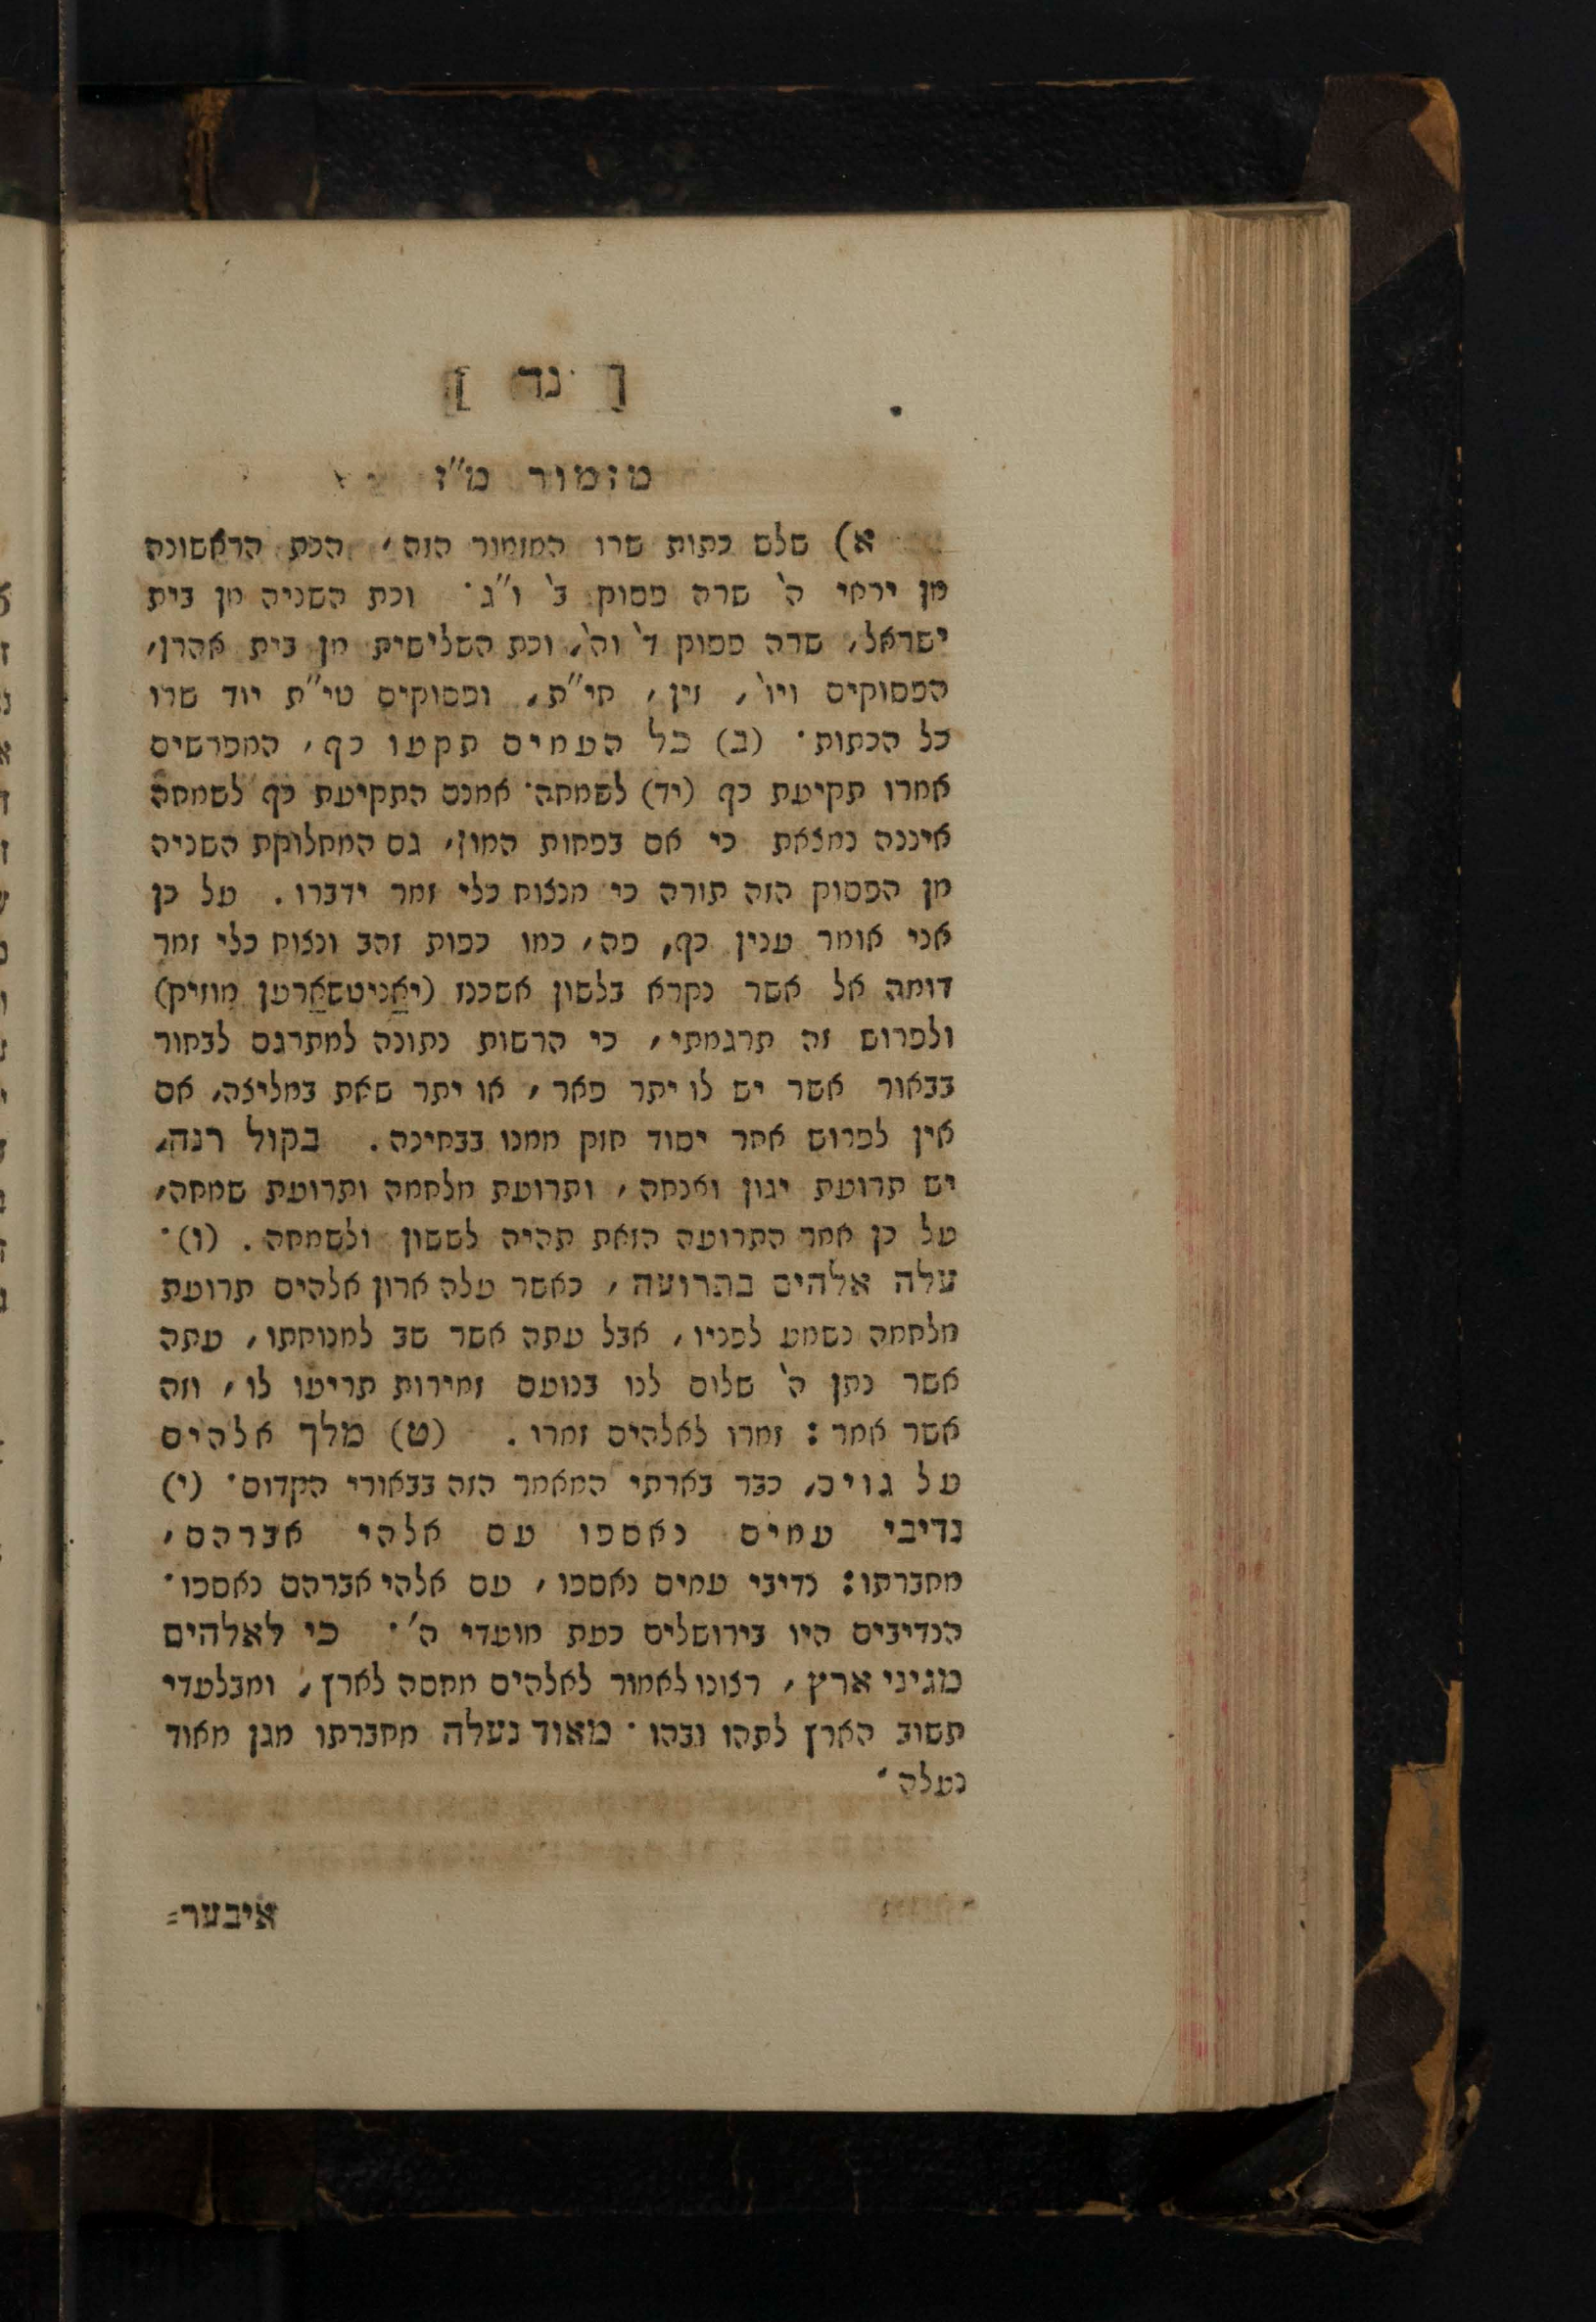 [ נד ]
מזמור מ״ז
א) שלש כתות שרו המזמור הזה, הכת הראשונה
מן יראי ה' שרה פסוק ב' ו״ג · וכת השניה מן בית
ישראל, שרה פסוק ד' וה', וכת השלישית מן בית אהרן,
הפסוקים ויו', זין, חי״ת, ופסוקים טי״ת יוד שרו
כל הכתות · (ב) כל העמים תקעו כף, המפרשים
אמרו תקיעת כף (יד) לשמחה· אמנם התקיעת כף לשמחה
איננה נמצאת כי אם בפחות המון, גם המחלוקת השניה
מן הפסוק הזה תורה כי מנצוח כלי זמר ידברו . על כן
אני אומר ענין כף, פה, כמו כפות זהב ונצוח כלי זמר
דומה אל אשר נקרא בלשון אשכנז (יאַניטשאַרטן מוזיק)
ולפרוש זה תרגמתי, כי הרשות נתונה למתרגם לבחור
בבאור אשר יש לו יתר פאר, או יתר שאת במליצה, אם
אין לפרוש אחר יסוד חזק ממנו בבחינה . בקול רנה,
יש תרועת יגון ואנחה, ותרועת מלחמה ותרועת שמחה,
על כן אמר התרועה הזאת תהיה לששון ולשמחה . (ו)·
עלה אלהים בתרועה, כאשר עלה ארון אלהים תרועת
מלחמה נשמע לפניו, אבל עתה אשר שב למנוחתו, עתה
אשר נתן ה' שלום לנו בנועם זמירות תריעו לו, וזה
אשר אמר : זמרו לאלהים זמרו . (ט) מלך אלהים
על גוים, כבר בארתי המאמר הזה בבאורי הקדום · (י)
נדיבי עמים נאספו עם אלהי אברהם,
מחברתו : נדיבי עמים נאספו, עם אלהי אברהם נאספו ·
הנדיבים היו בירושלים כעת מועדי ה' · כי לאלהים
מגיני ארץ, רצונו לאמור לאלהים מחסה לארץ, ומבלעדי
תשוב הארץ לתהו ובהו · מאוד נעלה מחברתו מגן מאוד
נעלה ·
איבער=